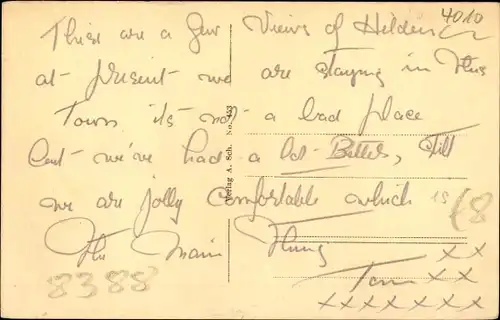 4010
These are a few views of Hilden
at present we are staying in this
Town its not a bad place
but we've had a lot Better, still
we are jolly comfortable which is
the main thing
Tom xx
xx
xxxxxxx
68
8388
Verlag A. Sch. No. 433